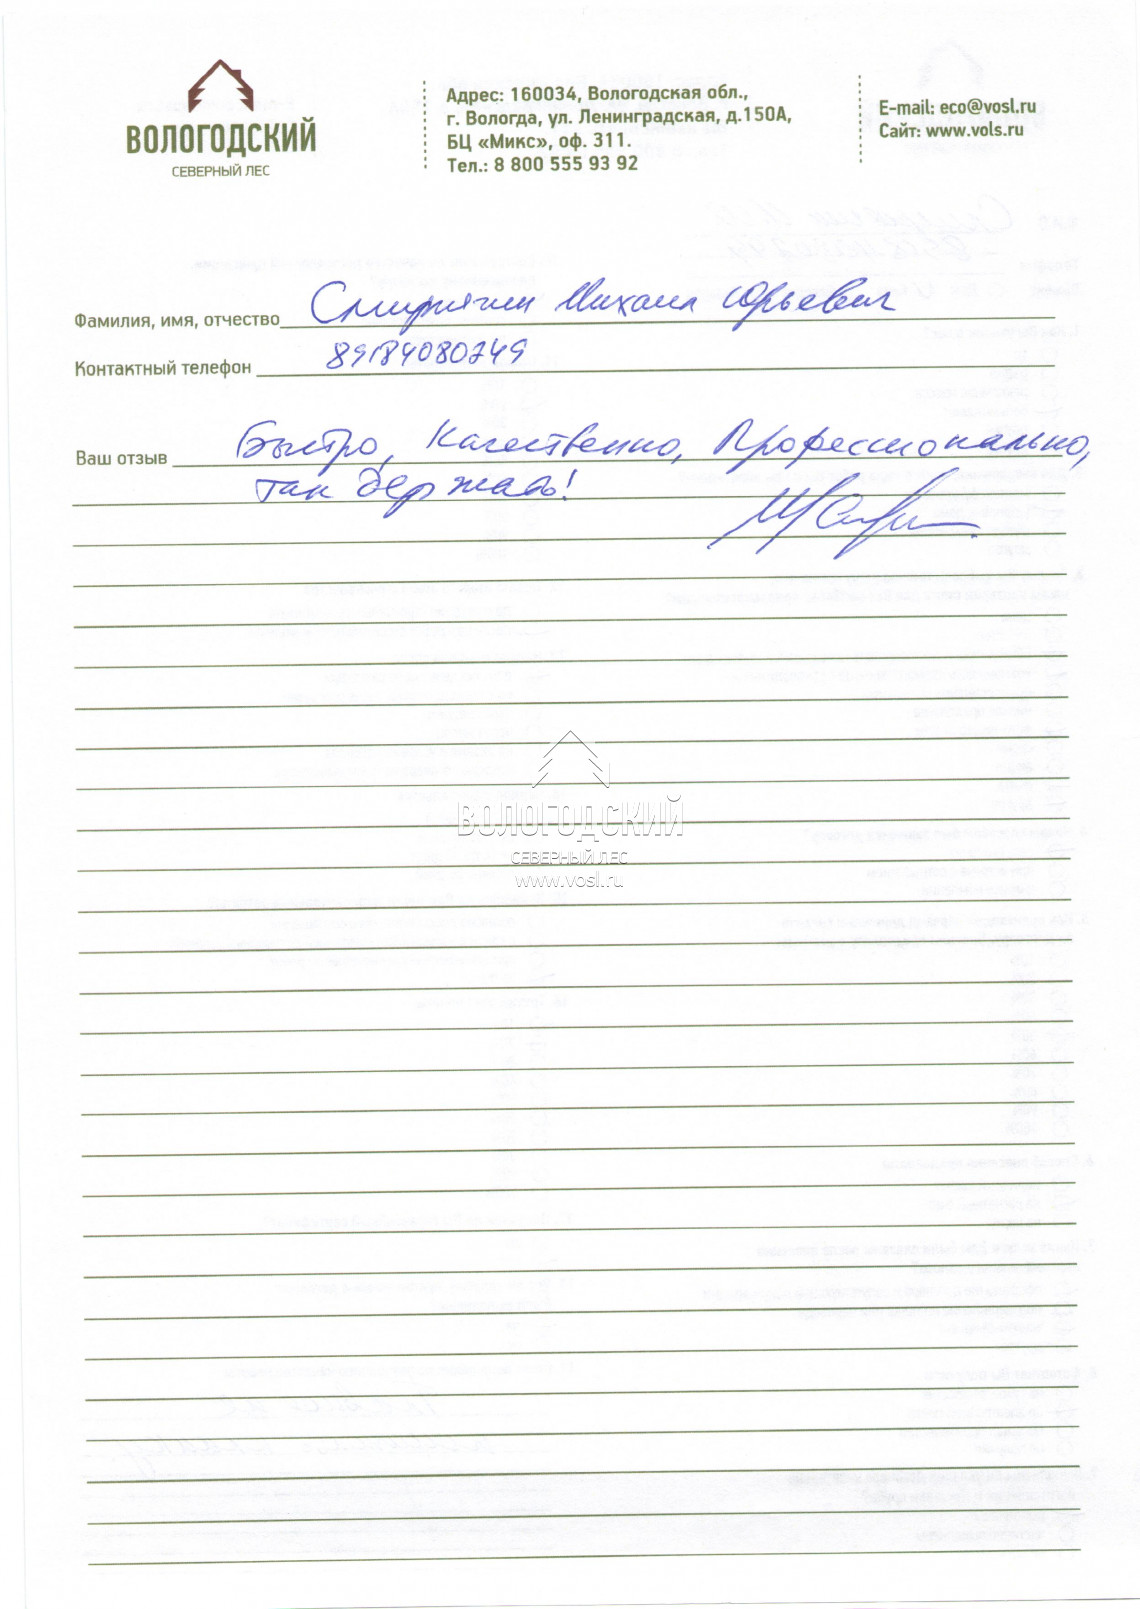 ВОЛОГОДСКИЙ
СЕВЕРНЫЙ ЛЕС
Адрес: 160034, Вологодская обл.,
г. Вологда, ул. Ленинградская, д.150А,
БЦ «Микс», оф. 311.
Тел.: 8 800 555 93 92
E-mail: eco@vosl.ru
Сайт: www.vols.ru
Фамилия, имя, отчество Смирягин Михаил Юрьевич
Контактный телефон 89184080249
Ваш отзыв Быстро, Качественно, Профессионально,
так держать!
ВОЛОГОДСКИЙ
СЕВЕРНЫЙ ЛЕС
www.vosl.ru